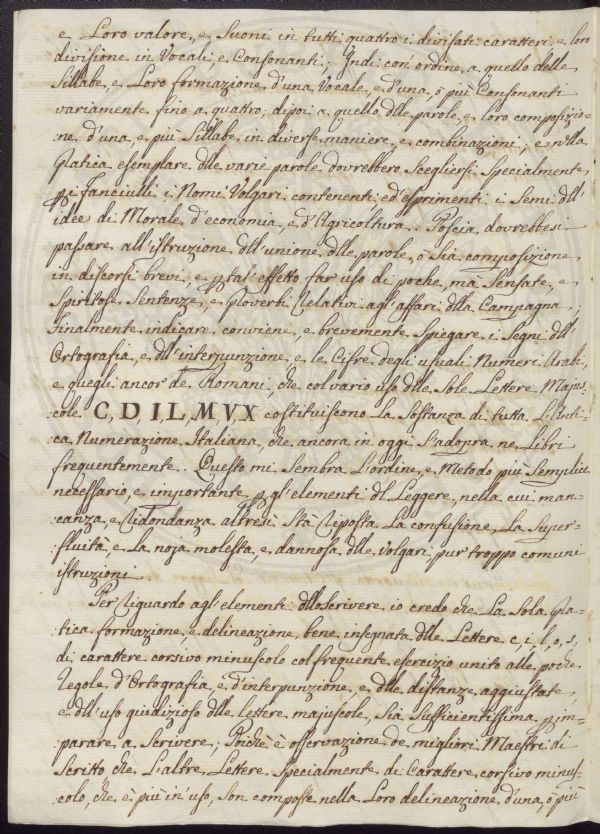 e Loro valore, e Suoni in tutti quattro i divisati caratteri e loro
divisione in Vocali e Consonanti; Indi con ordine a quello delle
Sillabe, e Loro formazione d'una Vocale, e d'una, ò più Consonanti
variamente fino a quattro; dipoi a quello dlle parole, e loro composizio=
:ne d'una, e più Sillabe in diverse maniere, e combinazioni; e nlla
Platica esemplare dlle varie parole dovrebbero Scegliersi Specialmente
p i fanciulli i Nomi Volgari contenenti ed esprimenti i Semi dll'
idee di Morale d'economia, e d'Agricoltura. Poscia dovrebbesi
passare all'istruzione dll'unione dlle parole, ò sia composizione
in discorsi brevi, e p tal' effetto far uso di poche, mà Sensate, e
Spiritose Sentenze, e Proverbi relativi agl'affari dlla Campagna;
Finalmente indicare conviene, e brevemente Spiegare i Segni dll'
Ortografia, e dll'interpunzione e le Cifre degli usuali Numeri Arabi,
e quegli ancor de Romani, che col vario uso dlle Sole Lettere Maju=
:scole C, D, I L, M, V X costituiscono La Sostanza di tutta L'Anti=
:ca Numerazione Italiana, che ancora in oggi s'adopra ne Libri
frequentemente. Questo mi Sembra L'ordine, e Metodo più Semplice
necessario, e importante p gl'elementi dl Leggere, nella cui man=
:canza, e ridondanza altresì Stà riposta La confusione, La Super=
:fluità, e La noja molesta, e dannosa dlle Volgari, pur troppo comuni
istruzioni.
Per riguardo agl'elementi dllo scrivere io credo che La Sola Pla=
:tica formazione, e delineazione bene insegnata dlle Lettere c, i, l, o, s,
di carattere corsivo minuscolo col frequente esercizio unito alle poche
regole d'Ortografia, e d'interpunzione, e dlle distanze aggiustate,
e dll'uso giudizioso dlle lettere majuscole, Sia Sufficientissima p im=
:parare a Scrivere; Poichè è osservazione de migliori Maestri di
Scritto che L'altre Lettere Specialmente di Carattere corsivo minus=
:colo, che è più in uso, son composte nella Loro delineazione d'una, ò più